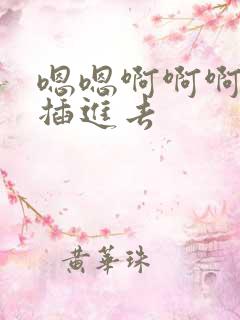 嗯嗯啊啊啊
插進去
黄華珠